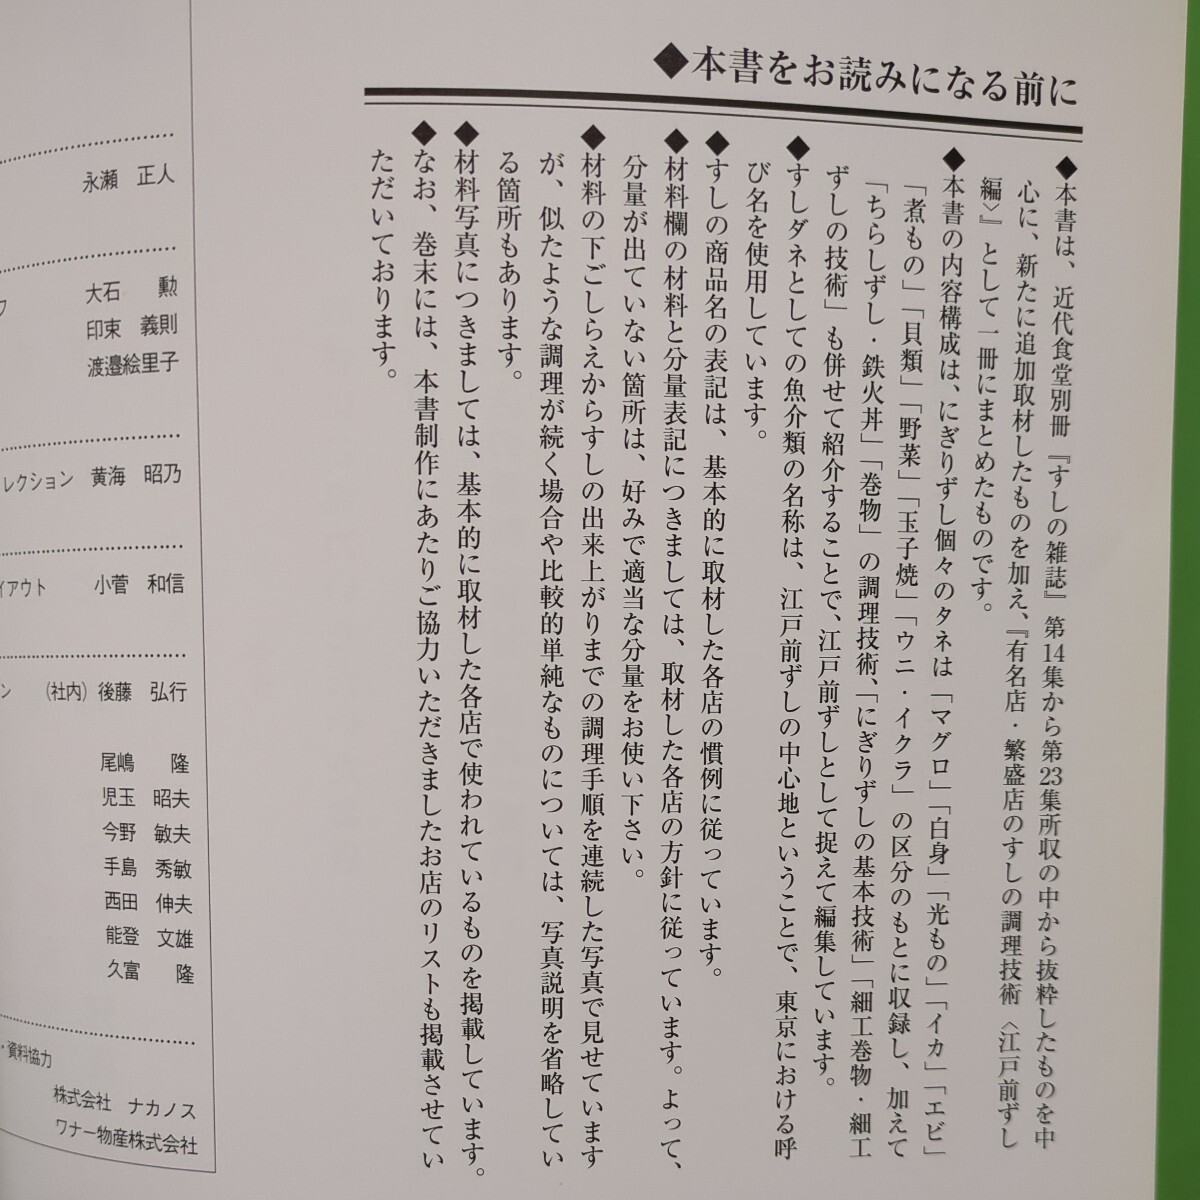 ◆本書をお読みになる前に
◆本書は、近代食堂別冊『すしの雑誌』第14集から第23集所収の中から抜粋したものを中
心に、新たに追加取材したものを加え、『有名店・繁盛店のすしの調理技術〈江戸前ずし
編〉』として一冊にまとめたものです。
◆本書の内容構成は、にぎりずし個々のタネは「マグロ」「白身」「光もの」「イカ」「エビ」
「煮もの」「貝類」「野菜」「玉子焼」「ウニ・イクラ」の区分のもとに収録し、加えて
「ちらしずし・鉄火丼」「巻物」の調理技術、「にぎりずしの基本技術」「細工巻物・細工
ずしの技術」も併せて紹介することで、江戸前ずしとして捉えて編集しています。
◆すしダネとしての魚介類の名称は、江戸前ずしの中心地ということで、東京における呼
び名を使用しています。
◆すしの商品名の表記は、基本的に取材した各店の慣例に従っています。
◆材料欄の材料と分量表記につきましては、取材した各店の方針に従っています。よって、
分量が出ていない箇所は、好みで適当な分量をお使い下さい。
◆材料の下ごしらえからすしの出来上がりまでの調理手順を連続した写真で見せています
が、似たような調理が続く場合や比較的単純なものについては、写真説明を省略してい
る箇所もあります。
◆材料写真につきましては、基本的に取材した各店で使われているものを掲載しています。
◆なお、巻末には、本書制作にあたりご協力いただきましたお店のリストも掲載させてい
ただいております。
永瀬 正人
フ 大石 勲
印束 義則
渡邉絵里子
レクション 黄海 昭乃
イアウト 小菅 和信
ン (社内) 後藤 弘行
尾嶋 隆
児玉 昭夫
今野 敏夫
手島 秀敏
西田 伸夫
能登 文雄
久富 隆
・資料協力
株式会社 ナカノス
ワナー物産株式会社